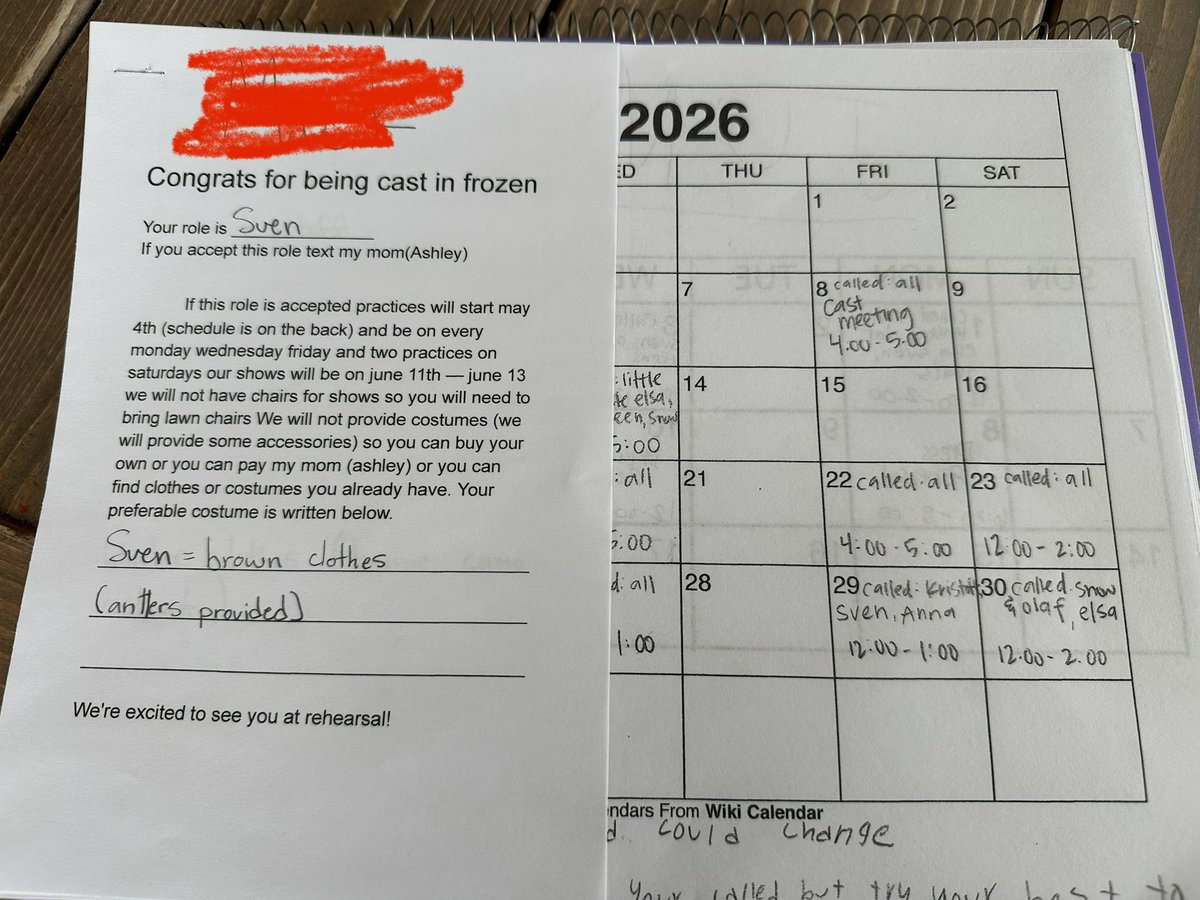 Congrats for being cast in frozen
Your role is Sven
If you accept this role text my mom(Ashley)
If this role is accepted practices will start may
4th (schedule is on the back) and be on every
monday wednesday friday and two practices on
saturdays our shows will be on june 11th — june 13
we will not have chairs for shows so you will need to
bring lawn chairs We will not provide costumes (we
will provide some accessories) so you can buy your
own or you can pay my mom (ashley) or you can
find clothes or costumes you already have. Your
preferable costume is written below.
Sven = brown clothes
(antlers provided)
We're excited to see you at rehearsal!
2026
ED THU FRI SAT
1 2
7 8 called: all 9
cast
meeting
4:00-5:00
: little 14 15 16
elsa,
een, snow
5:00
: all 21 22 called: all 23 called: all
5:00 4:00-5:00 12:00-2:00
d: all 28 29 called: Kristoff, 30 called: snow
Sven, Anna & olaf, elsa
1:00 12:00-1:00 12:00-2:00
ndars From Wiki Calendar
d could change
your called but try your best to